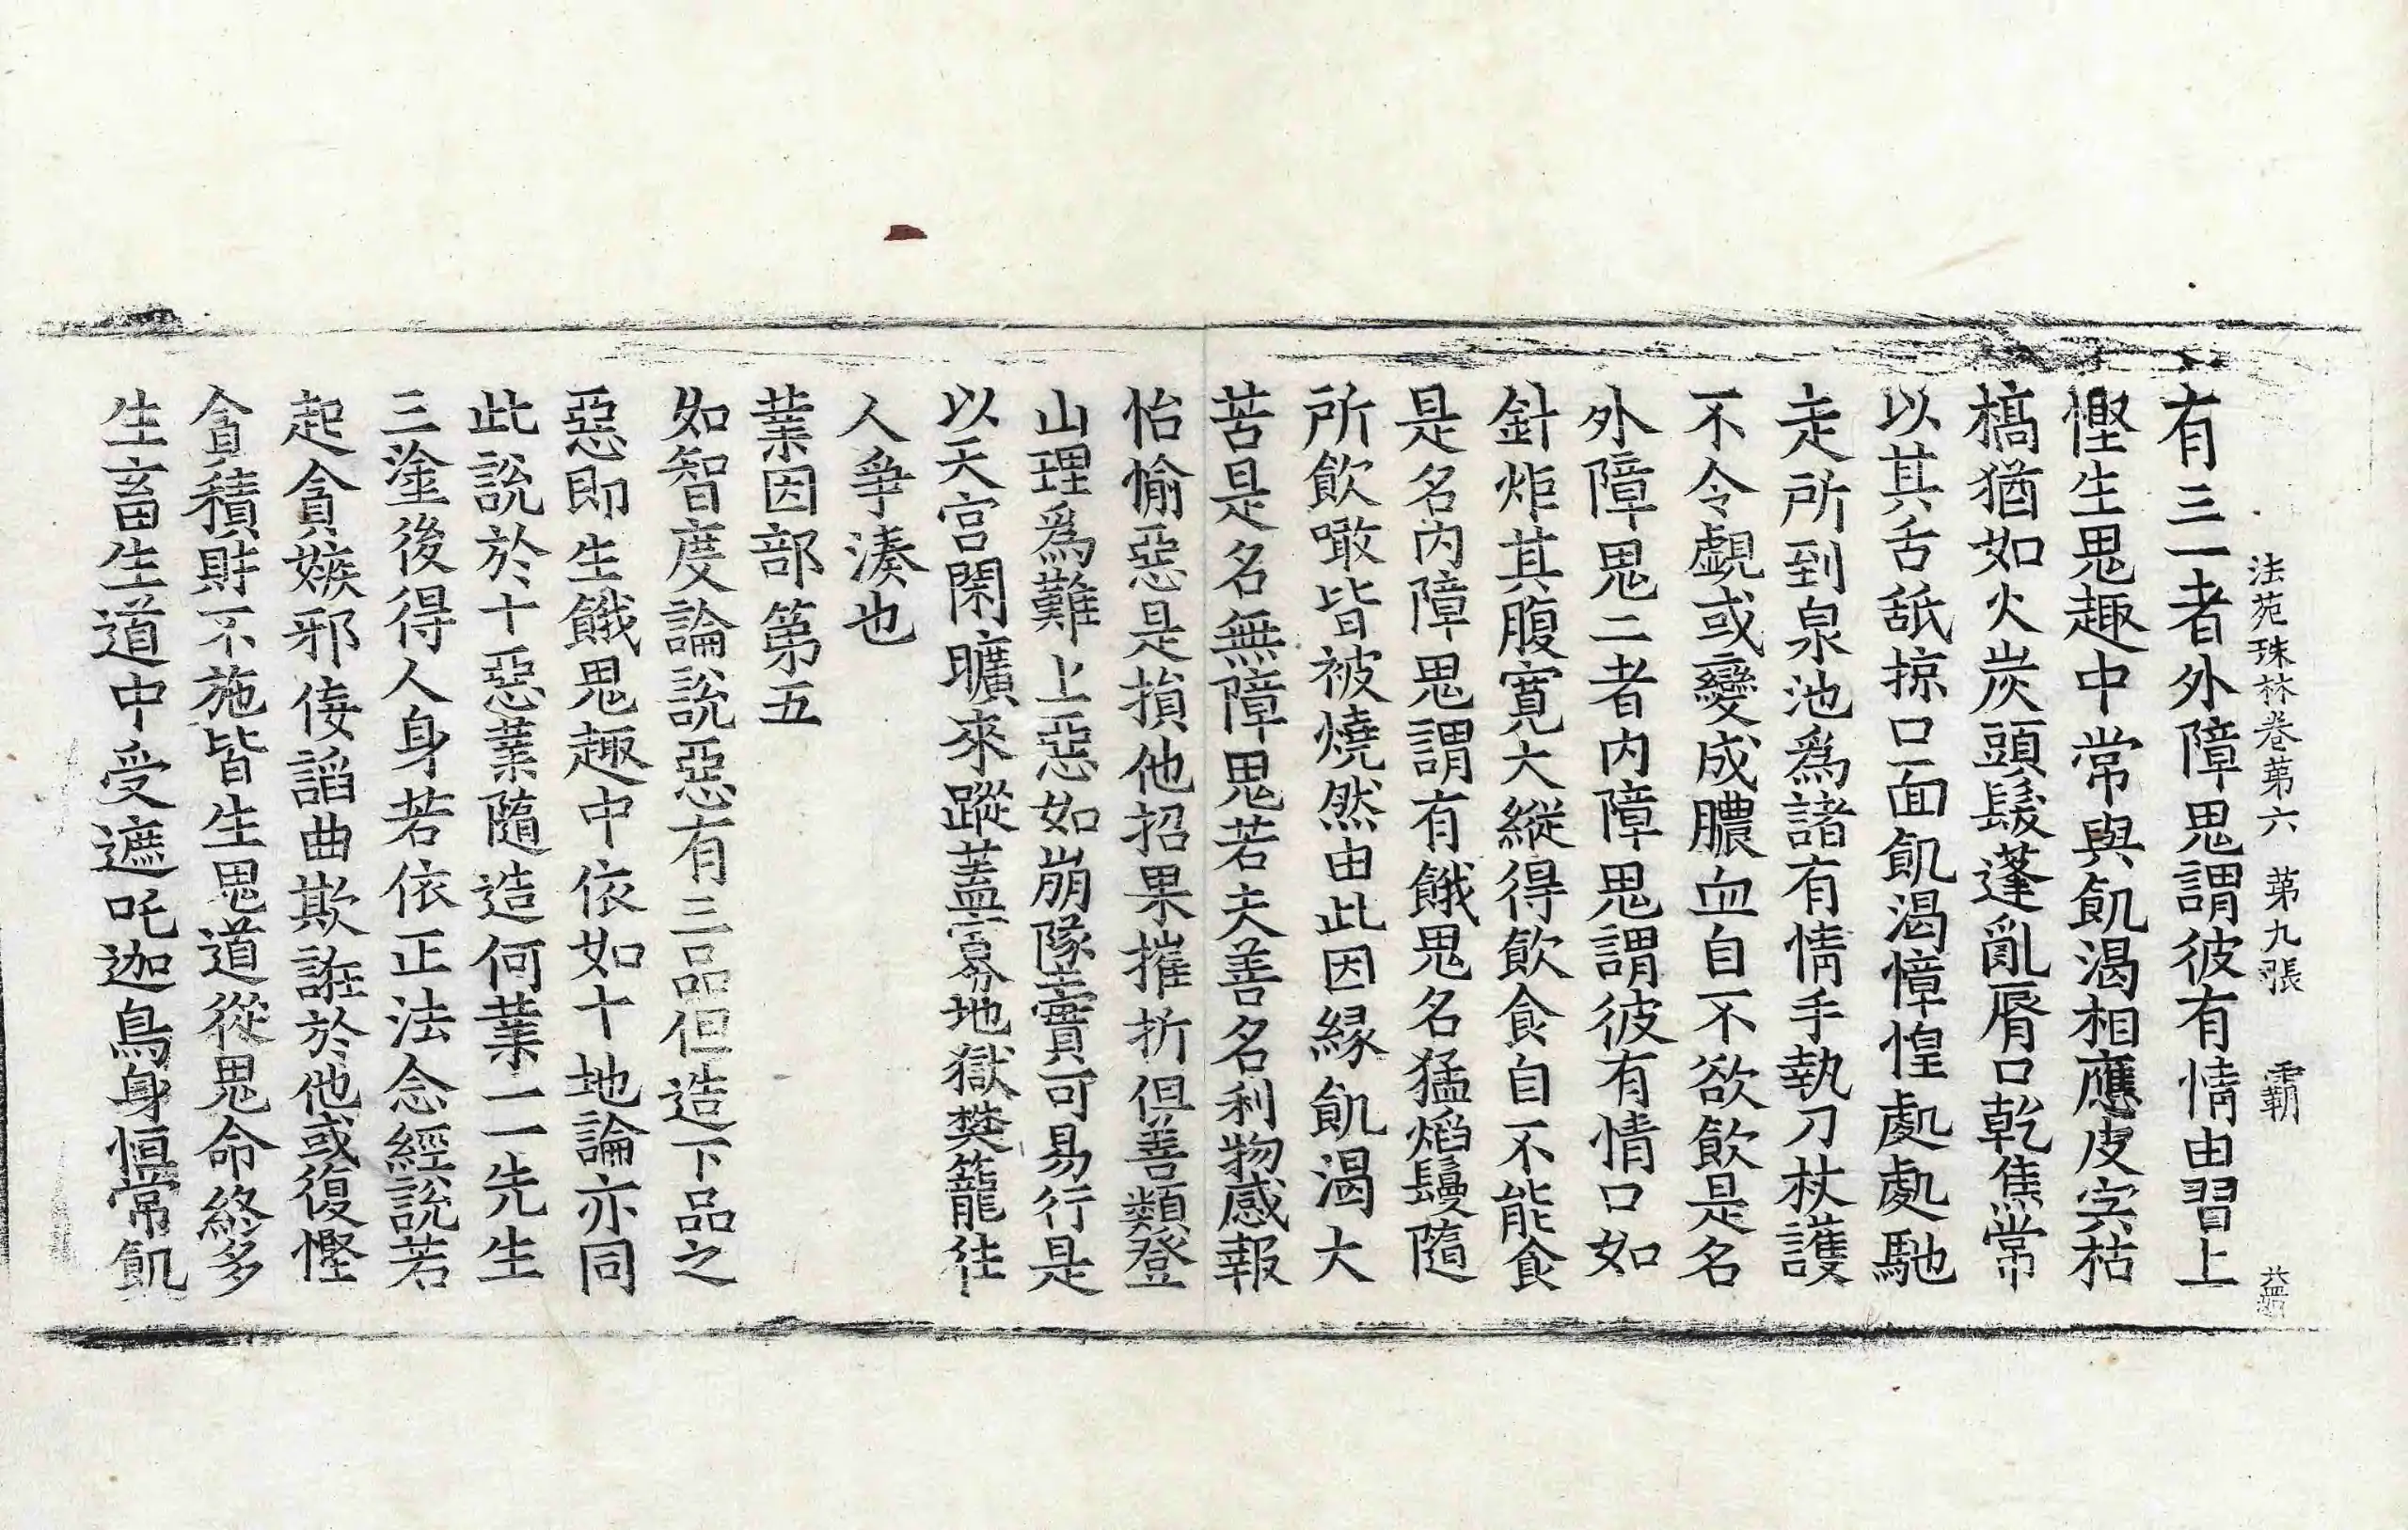 法苑珠林卷第六 第九張 霸
有三一者外障鬼謂彼有情由習上
慳生鬼趣中常與飢渴相應皮宍枯
槁猶如火炭頭髮蓬亂脣口乾焦常
以其舌舐掠口面飢渴慞惶處處馳
走所到泉池為諸有情手執刀杖護
不令覷或變成膿血自不欲飲是名
外障鬼二者内障鬼謂彼有情口如
針炬其腹寬大縱得飲食自不能食
是名内障鬼謂有餓鬼名猛焰鬘隨
所飲噉皆被燒然由此因緣飢渴大
苦是名無障鬼若夫善名利物感報
怡愉惡是損他招果摧折但善類登
山理爲難上惡如崩隊實可易行是
以天宮閑曠來蹤蓋寡地獄樊籠往
人爭湊也
業因部第五
如智度論說惡有三品但造下品之
惡即生餓鬼趣中依如十地論亦同
此說於十惡業隨造何業一一先生
三塗後得人身若依正法念經說若
起貪嫉邪佞諂曲欺誑於他或復慳
貪積財不施皆生鬼道從鬼命終多
生畜生道中受遮吒迦鳥身恒常飢